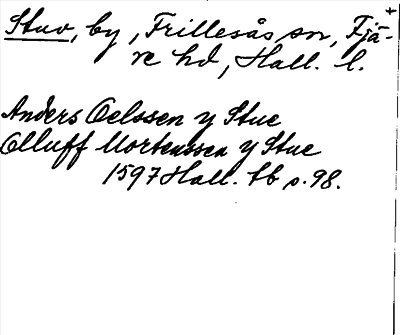 Stuv, by, Frillesås sn, Fjä-
re hd, Hall. l.
Anders Oelssen y Stue
Olluff Mortenssen y Stue
1597 Hall. tb s. 98.